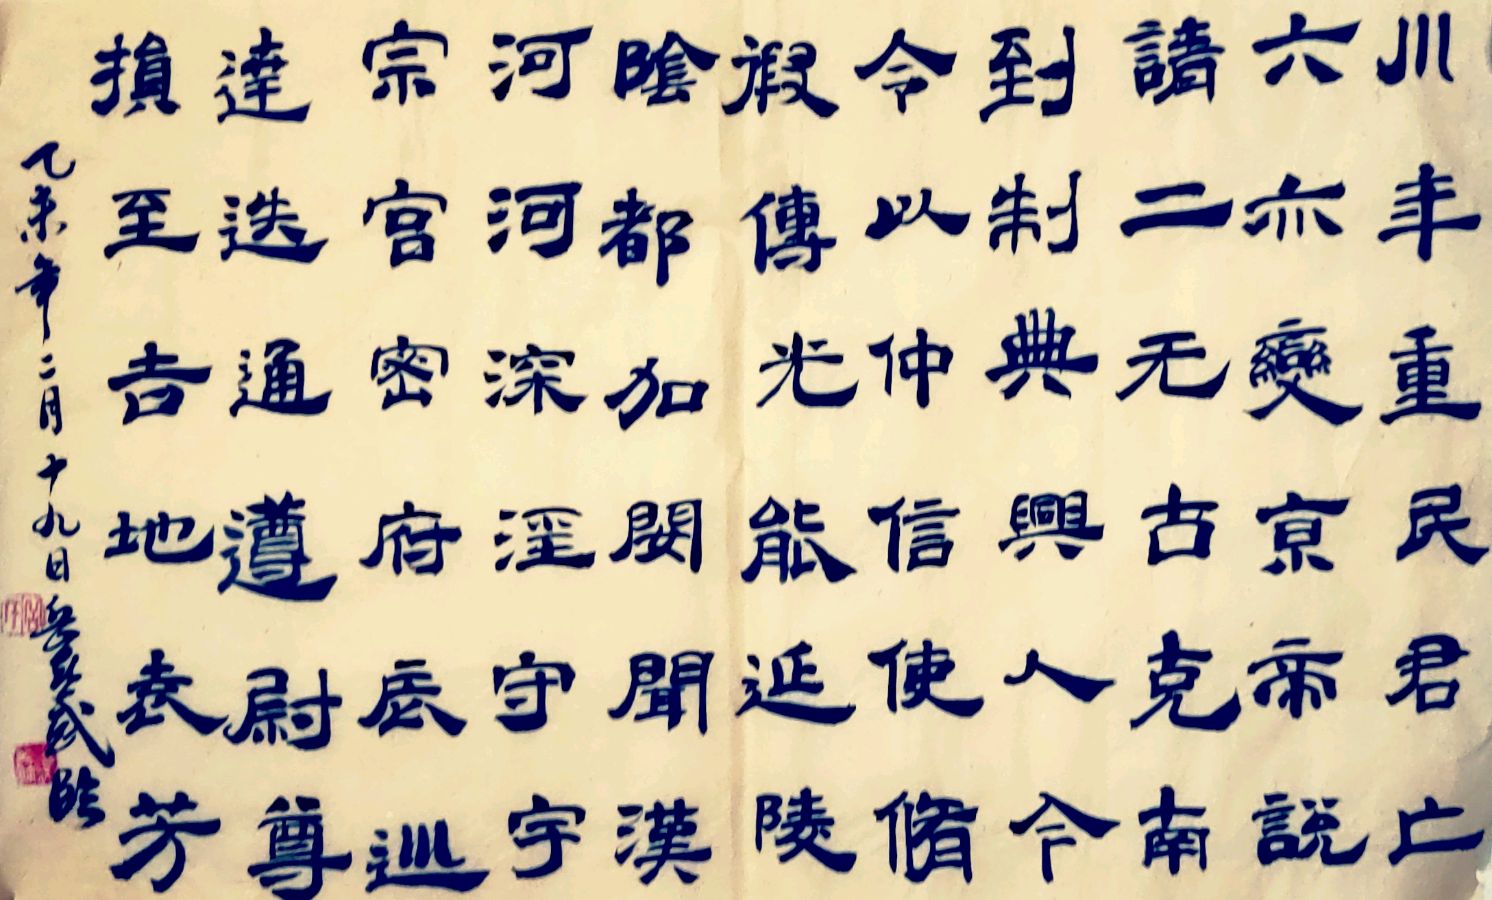 川年重民君亡
六亦變京帝說
請二无古克南
到制典興人今
令以仲信使脩
假傳光能延陵
陰都加閔聞漢
河河深淫守宇
宗宮密府底巡
達迭通遵尉尊
損至吉地袁芳
乙未年二月十九日武臨